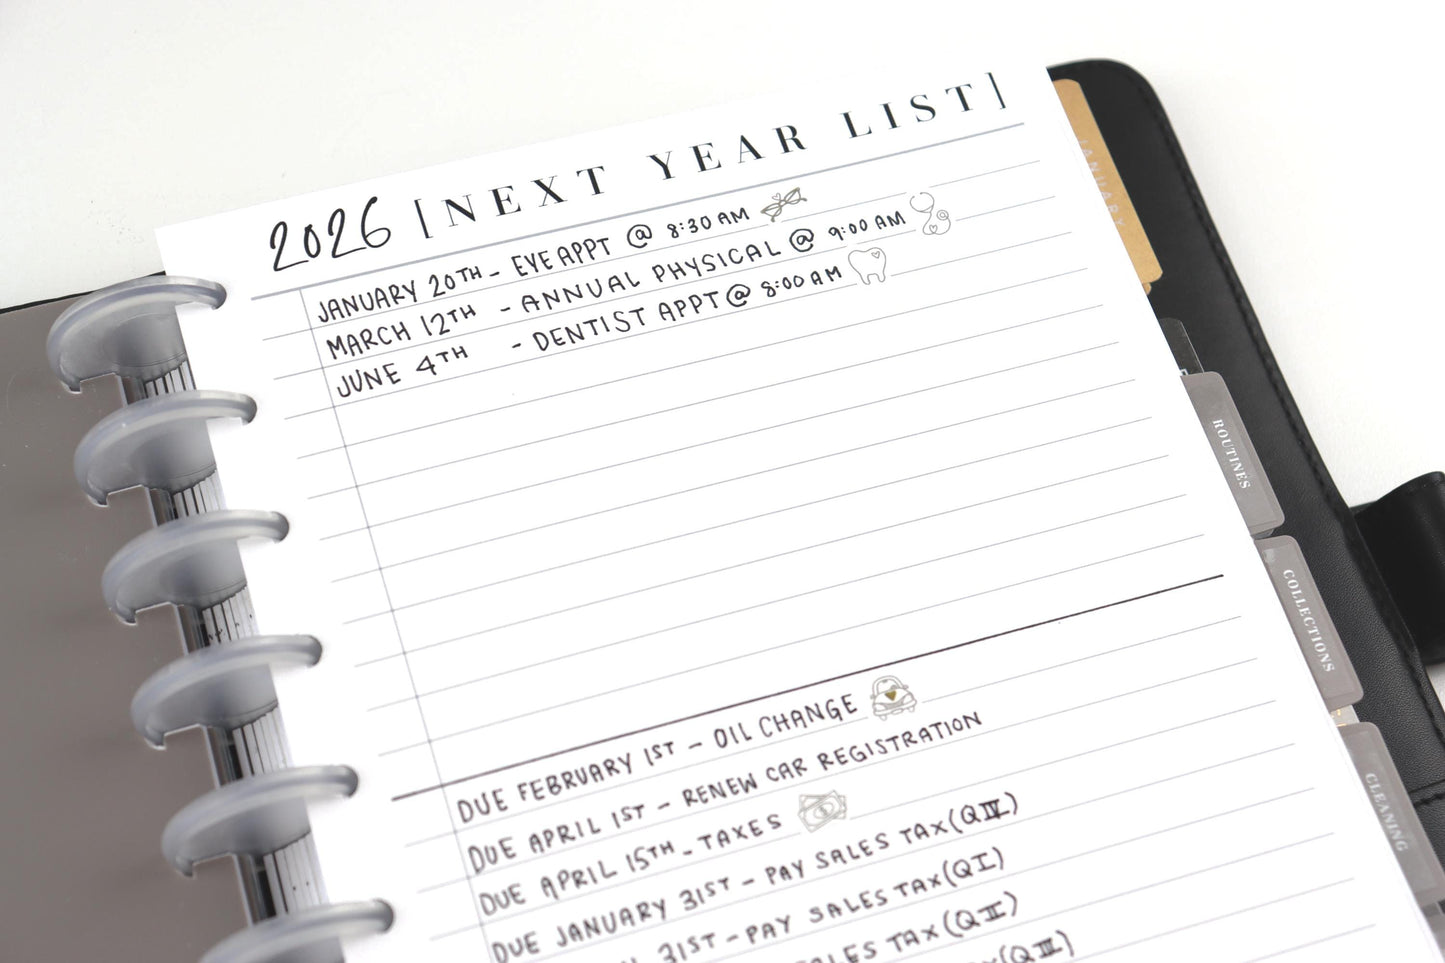 2026 [NEXT YEAR LIST]
JANUARY 20TH - EYE APPT @ 8:30 AM
MARCH 12TH - ANNUAL PHYSICAL @ 9:00 AM
JUNE 4TH - DENTIST APPT @ 8:00 AM
DUE FEBRUARY 1ST - OIL CHANGE
DUE APRIL 1ST - RENEW CAR REGISTRATION
DUE APRIL 15TH - TAXES
DUE JANUARY 31ST - PAY SALES TAX (Q IV)
31ST - PAY SALES TAX (Q I)
SALES TAX (Q II)
(Q III)
JANUARY
ROUTINES
COLLECTIONS
CLEANING